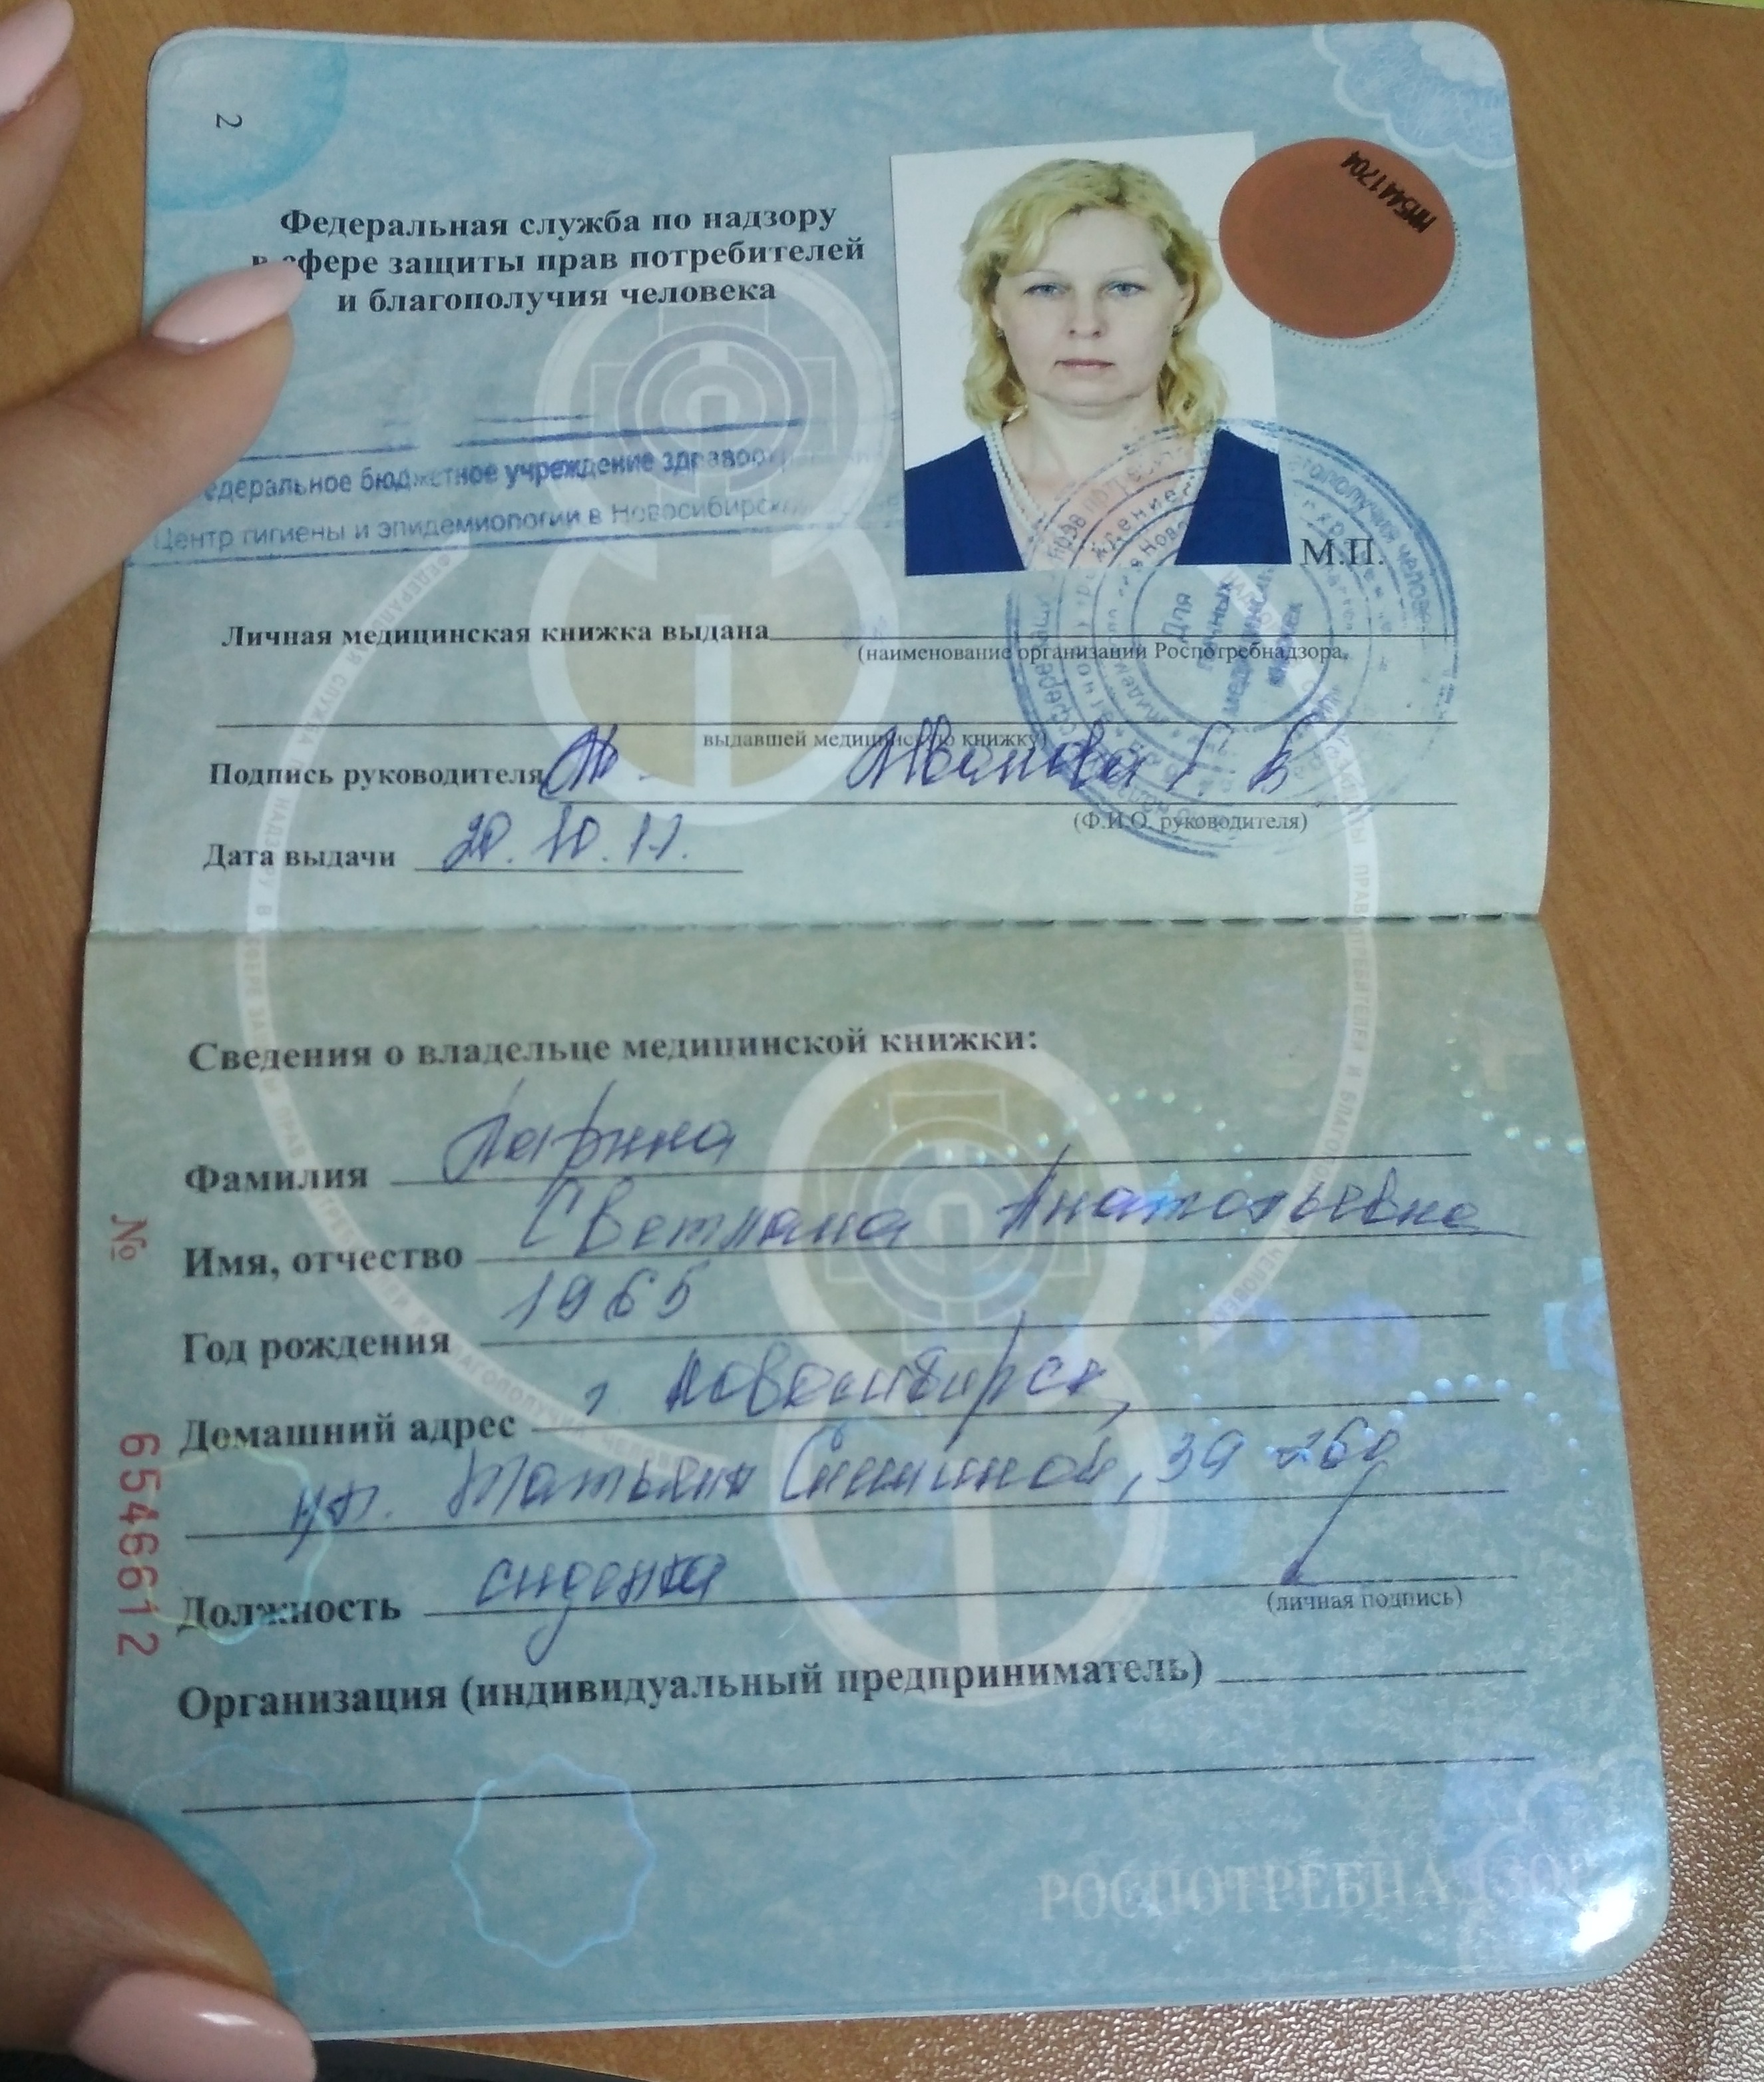 2
Федеральная служба по надзору
в сфере защиты прав потребителей
и благополучия человека
ММ5441704
Федеральное бюджетное учреждение
Центр гигиены и эпидемиологии в
М.П.
Для личных медицинских книжек
Личная медицинская книжка выдана
(наименование организаций Роспотребнадзора,
выдавшей медицинскую книжку)
Подпись руководителя Иванова Г. В
(Ф.И.О. руководителя)
Дата выдачи 20.10.11.
Сведения о владельце медицинской книжки:
Фамилия Ларина
Имя, отчество Светлана Анатольевна
Год рождения 1965
Домашний адрес г. Новосибирск,
ул. Татьяны Снежиной, 39 - 260
Должность сиделка
(личная подпись)
Организация (индивидуальный предприниматель)
№ 6546612
РОСПОТРЕБНАДЗОР